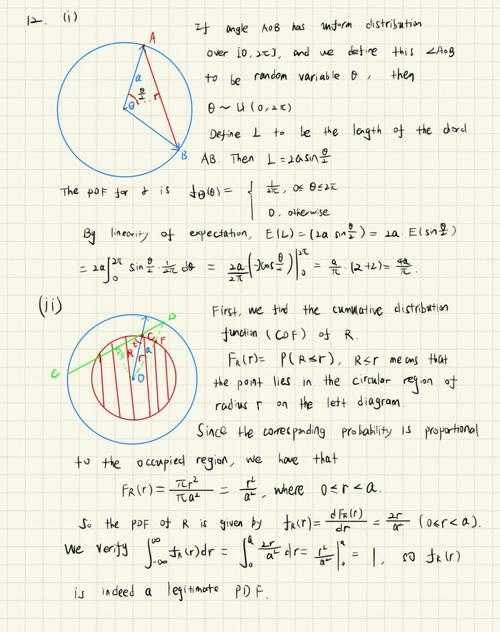 12. (i)
If angle AOB has uniform distribution
over [0, 2π], and we define this ∠AOB
to be random variable θ, then
θ ~ U(0, 2π)
Define L to be the length of the chord
AB. Then L = 2a sin θ/2
A
a
θ/2
r
θ
B
The PDF for is f_Θ(θ) = { 1/2π, 0≤ θ ≤ 2π
0, otherwise
By linearity of expectation, E(L) = (2a sin θ/2) = 2a · E(sin θ/2)
= 2a ∫₀^2π sin θ/2 · 1/2π dθ = 2a/2π (-2cos θ/2)|₀^2π = a/π · (2+2) = 4a/π.
(ii)
First, we find the cumulative distribution
function (CDF) of R.
F_R(r) = P(R ≤ r), R ≤ r means that
the point lies in the circular region of
radius r on the left diagram
D
C
F
R
r
a
O
G
Since the corresponding probability is proportional
to the occupied region, we have that
F_R(r) = πr²/πa² = r²/a², where 0 ≤ r < a.
So the PDF of R is given by f_R(r) = dF_R(r)/dr = 2r/a² (0 ≤ r < a).
We verify ∫_-∞^∞ f_R(r) dr = ∫₀^a 2r/a² dr = r²/a² |₀^a = 1, so f_R(r)
is indeed a legitimate PDF.